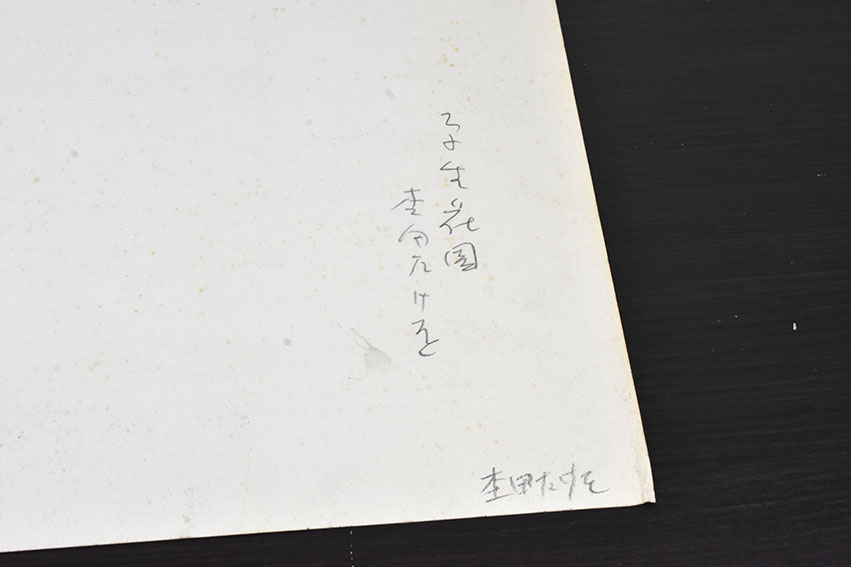 生花園
杢田たけを
杢田たけを